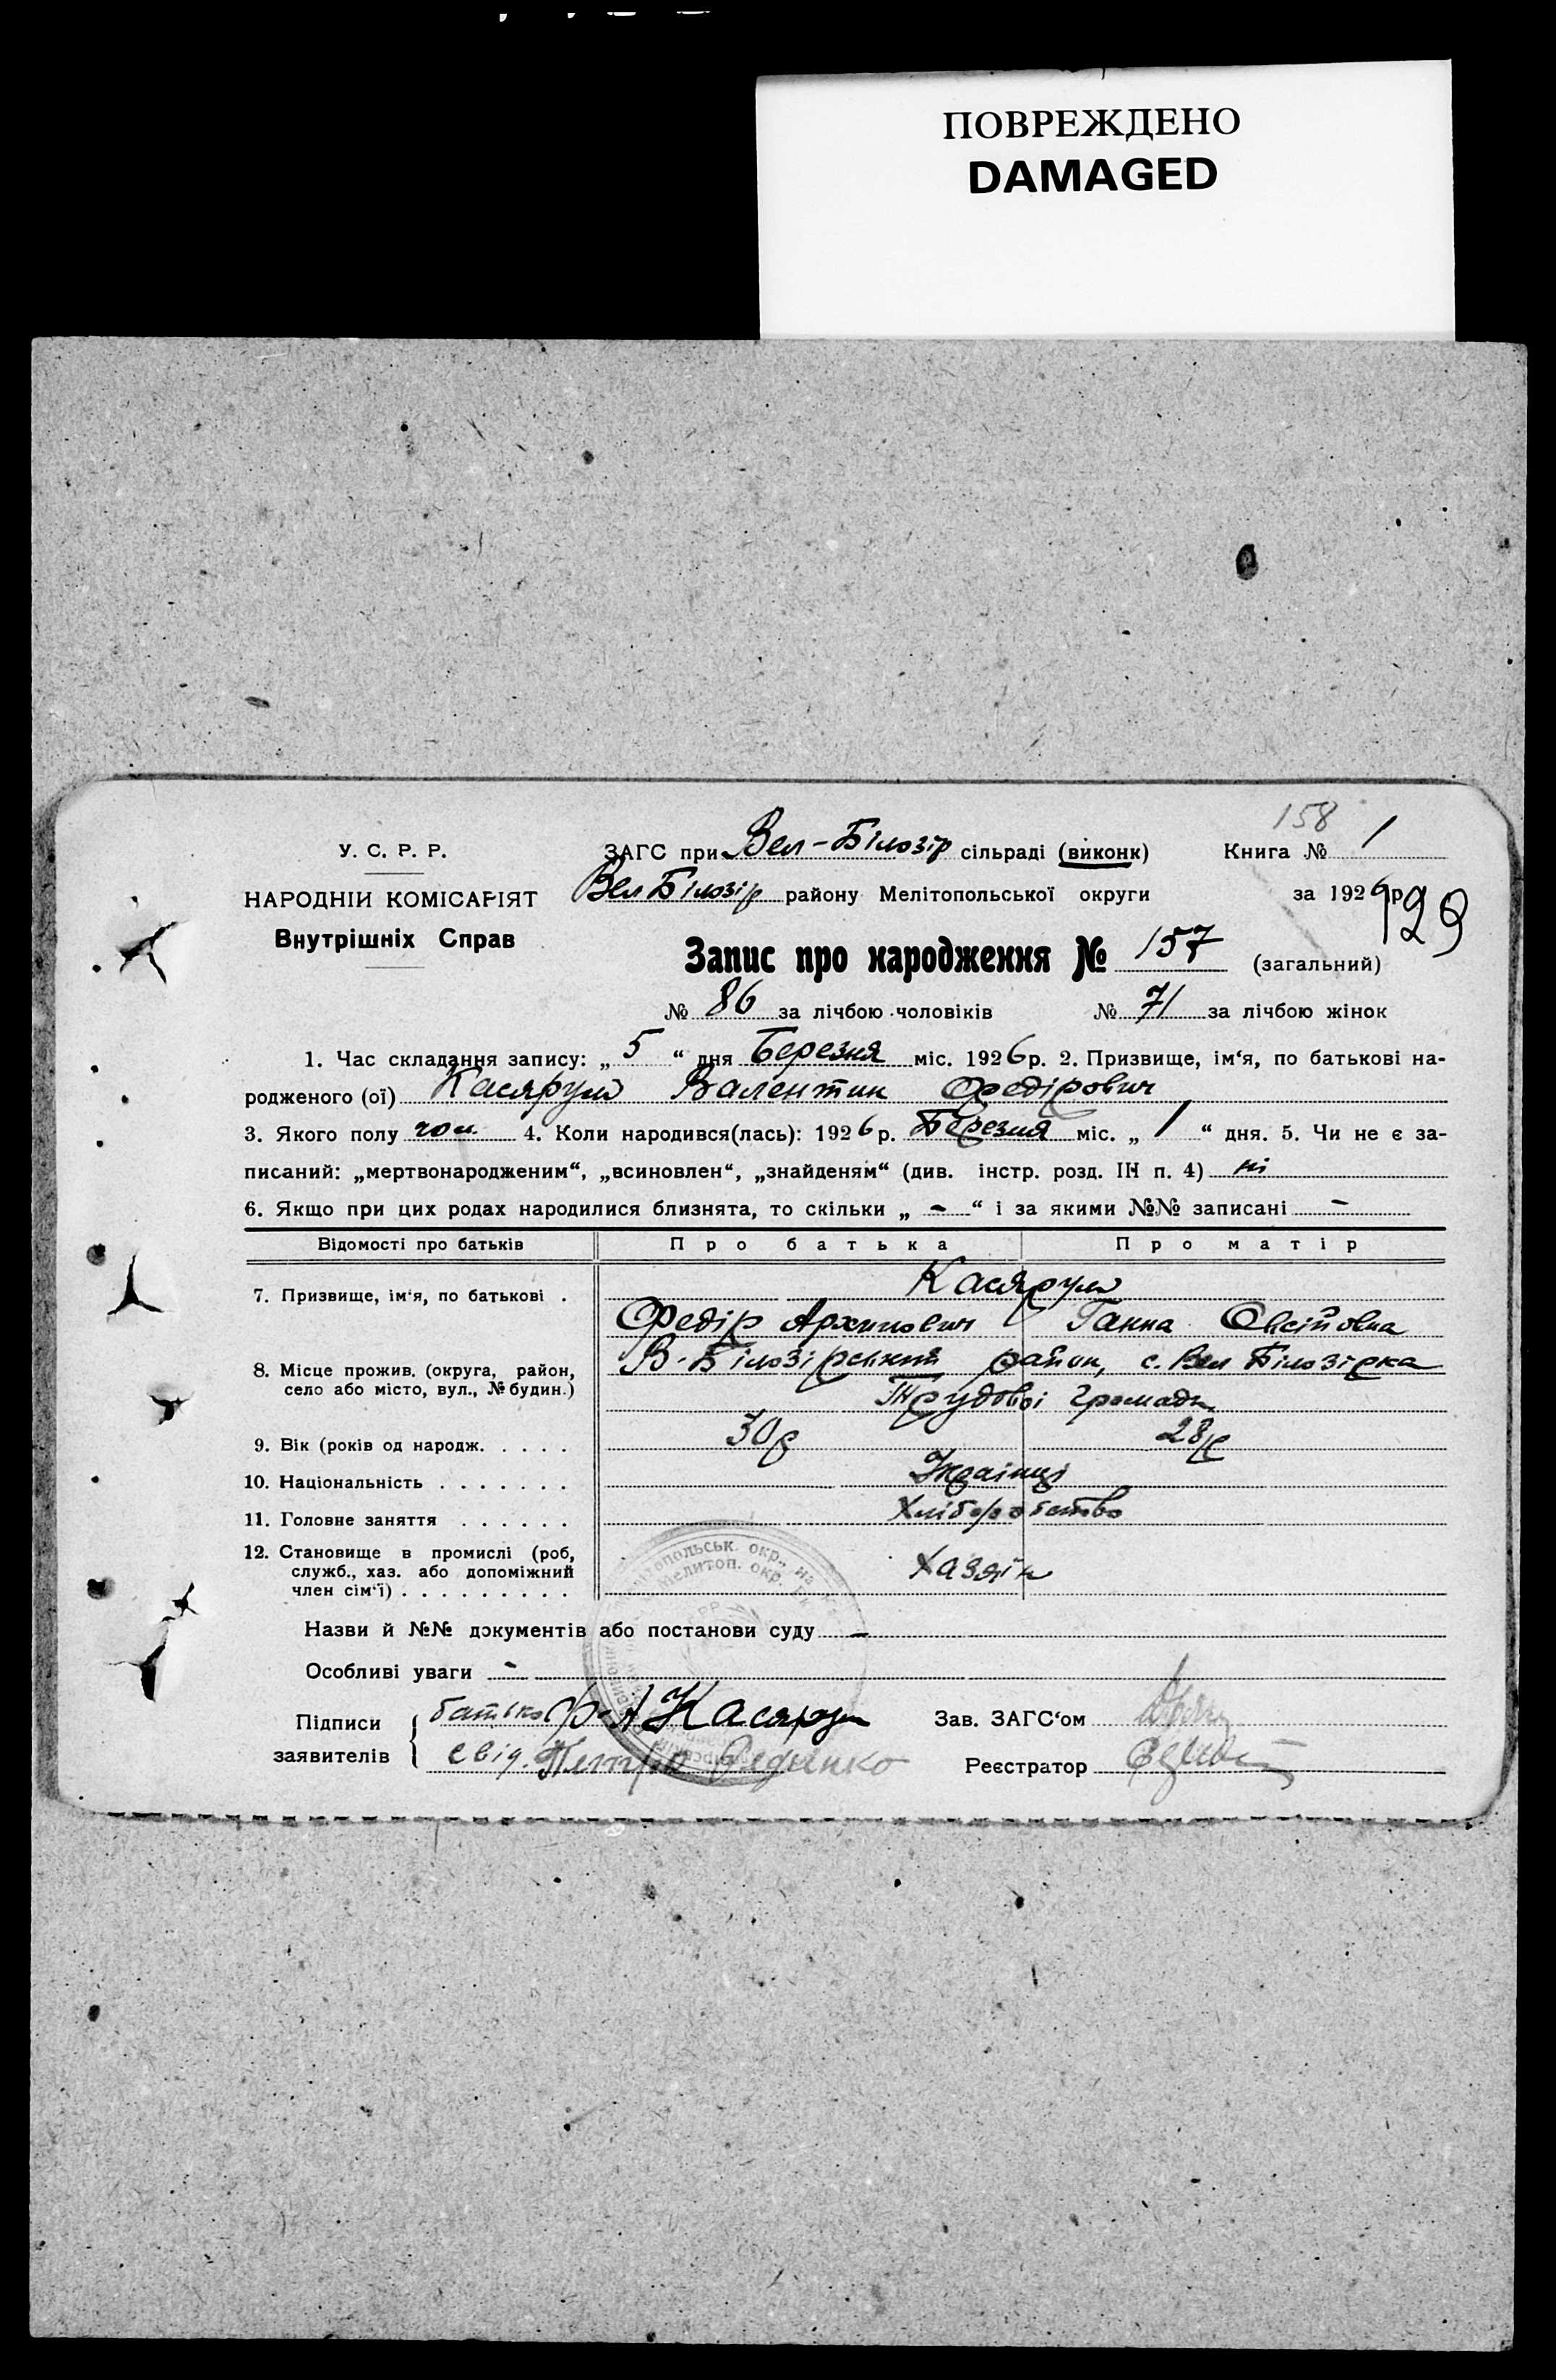 ПОВРЕЖДЕНО
DAMAGED
158
У. С. Р. Р.
НАРОДНІЙ КОМІСАРІЯТ
Внутрішніх Справ
ЗАГС при Вел-Білозір сільраді (виконк)
Книга № 1
Вел Білозір району Мелітопольської округи
за 1926 р
129
Запис про народження № 157 (загальний)
№ 86 за лічбою чоловіків № 71 за лічбою жінок
1. Час складання запису: „ 5 “ дня Березня міс. 1926 р. 2. Призвище, ім‘я, по батькові на-
родженого (ої) Касярум Валентин Федірович
3. Якого полу чол 4. Коли народився(лась): 1926 р. Березня міс. „ 1 “ дня. 5. Чи не є за-
писаний: „мертвонародженим“, „всиновлен“, „знайденям“ (див. інстр. розд. ІН п. 4) ні
6. Якщо при цих родах народилися близнята, то скільки „ - “ і за якими №№ записані -
Відомості про батьків Про батька Про матір
7. Призвище, ім‘я, по батькові . Касярум
Федір Архипович Ганна Овсійовна
8. Місце прожив. (округа, район, В-Білозірський район, с. Вел Білозірка
село або місто, вул., № будин.)
Трудовоі Громади
9. Вік (років од народж. . . . . 30р 28р
10. Національність . . . . . . . Українці
11. Головне заняття . . . . . . Хліборобство
12. Становище в промислі (роб, Хазяїн
служб., хаз. або допоміжний
член сім‘ї) . . . . . . . . .
Назви й №№ документів або постанови суду —
Особливі уваги -
Підписи
заявителів
батько Ф-А Касярум
свід. Петро
Зав. ЗАГС‘ом
Реєстратор